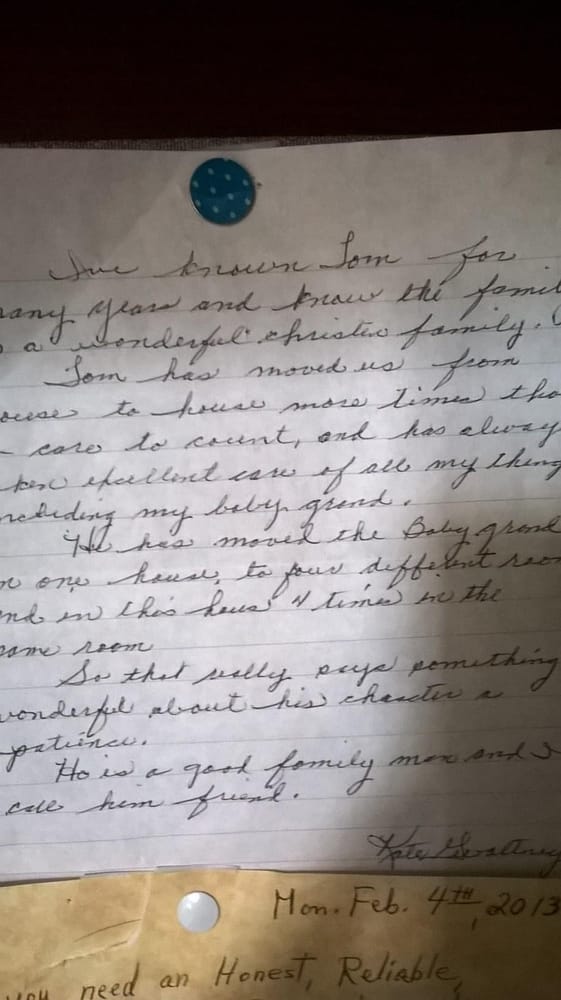 I've known Tom for
many years and know the famil
a wonderful christen family.
Tom has moved us from
ouse to house more times tha
care to count, and has alway
ken excellent care of all my thing
ncluding my baby grand.
He has moved the Baby grand
n one house, to four different roo
nd in this hous 4 times in the
same room
So that really says something
wonderful about his charcter a
patience.
He is a good family man and I
call him friend.
Kate Gwaltney
Mon. Feb. 4TH, 2013
you need an Honest, Reliable,